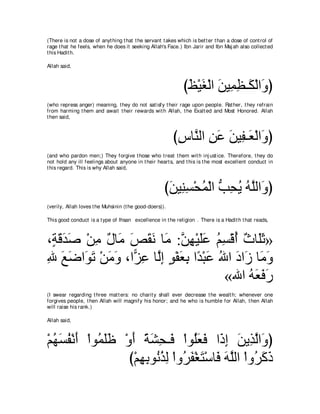 (There is not a dose of anything that the servant takes which is better than a dose of control of
rage that he feels, when he does it seeking Allah's Face.) Ibn Jarir and Ibn Majah also collected
this Hadith.
Allah said,
(وَالْكَـظِمِينَ الْغَيْظَ)
(who repress anger) meaning, they do not satisfy their rage upon people. Rather, they refrain
from harming them and await their rewards with Allah, the Exalted and Most Honored. Allah
then said,
(وَالْعَـفِينَ عَنِ النَّاسِ)
(and who pardon men;) They forgive those who treat them with injustice. Therefore, they do
not hold any ill feelings about anyone in their hearts, and this is the most excellent conduct in
this regard. This is why Allah said,
(وَاللَّهُ يُحِبُّ الْمُحْسِنِينَ)
(verily, Allah loves the Muhsinin (the good-doers)).
This good conduct is a type of Ihsan excellence in the religion . There is a Hadith that reads,
«ثَلَاثٌ أُقْسِمُ عَلَيْهِنَّ: مَا نَقَصَ مَالٌ مِنْ صَدَقَةٍ،
وَمَا زَادَ اللهُ عَبْدًا بِعَفْوٍ إِلَّا عِزًّا، وَمَنْ تَوَاضَعَ للهِ
رَفَعَهُ الله»
(I swear regarding three matters: no charity shall ever decrease the wealth; whenever one
forgives people, then Allah will magnify his honor; and he who is humble for Allah, then Allah
will raise his rank.)
Allah said,
(وَالَّذِينَ إِذَا فَعَلُواْ فَـحِشَةً أَوْ ظَلَمُواْ أَنْفُسَهُمْ
ذَكَرُواْ اللَّهَ فَاسْتَغْفَرُواْ لِذُنُوبِهِمْ)